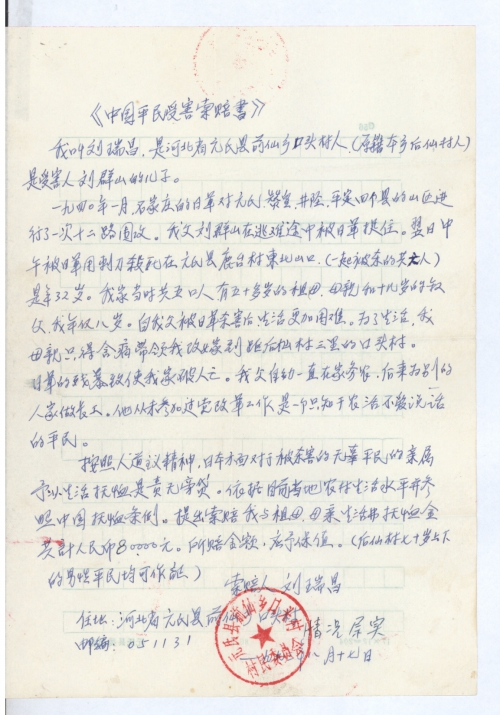 《中国平民受害索赔書》
我叫刘瑞昌，是河北省元氏县前仙乡口头村人（原籍本乡后仙村人）
是受害人刘群山的儿子。
一九四〇年一月石家庄的日軍对元氏、赞皇、井陉、平定四个县的山区进
行了一次十二路围攻。我父刘群山在逃难途中被日軍捉住。翌日中
午被日軍用刺刀殺死在元氏县鹿台村東北山口，（一起被杀的共六人）
是年32岁。我家当时共五口人有五十多岁的祖母、母親和十几岁的叔
父，我年仅八岁。自我父被日軍杀害后生活更加困难。为了生活，我
母親只得含痛带领我改嫁到距后仙村三里的口头村。
日軍的残暴致使我家破人亡。我父自幼一直在家务农，后来为别的
人家做長工。他从未参加过党政軍工作是一个只知干农活不爱说话
的平民。
按照人道议精神，日本方面对于被杀害的无辜平民的亲属
予以生活抚恤是責无旁贷。依据目前当地农村生活水平并参
照中国抚恤条例。提出索赔我与祖母、母亲生活费抚恤金
共計人民币80000元。所赔金额，应予保值。（后仙村七十岁上下
的男性平民均可作証）
索赔人 刘瑞昌
住址：河北省元氏县前仙乡口头村
情况属实
邮编：051131
八月十七日